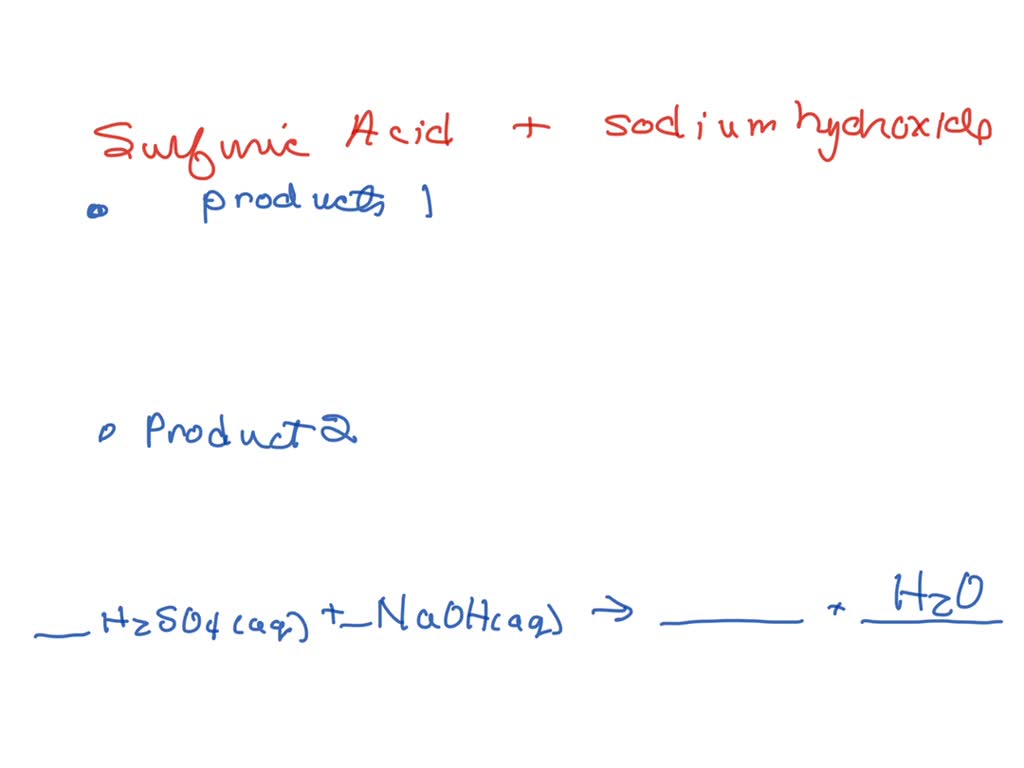 Sulfuric Acid + sodium hydroxide
• products 1
• Product 2
__ H₂SO₄(aq) + _ NaOH(aq) → ____ + H₂O